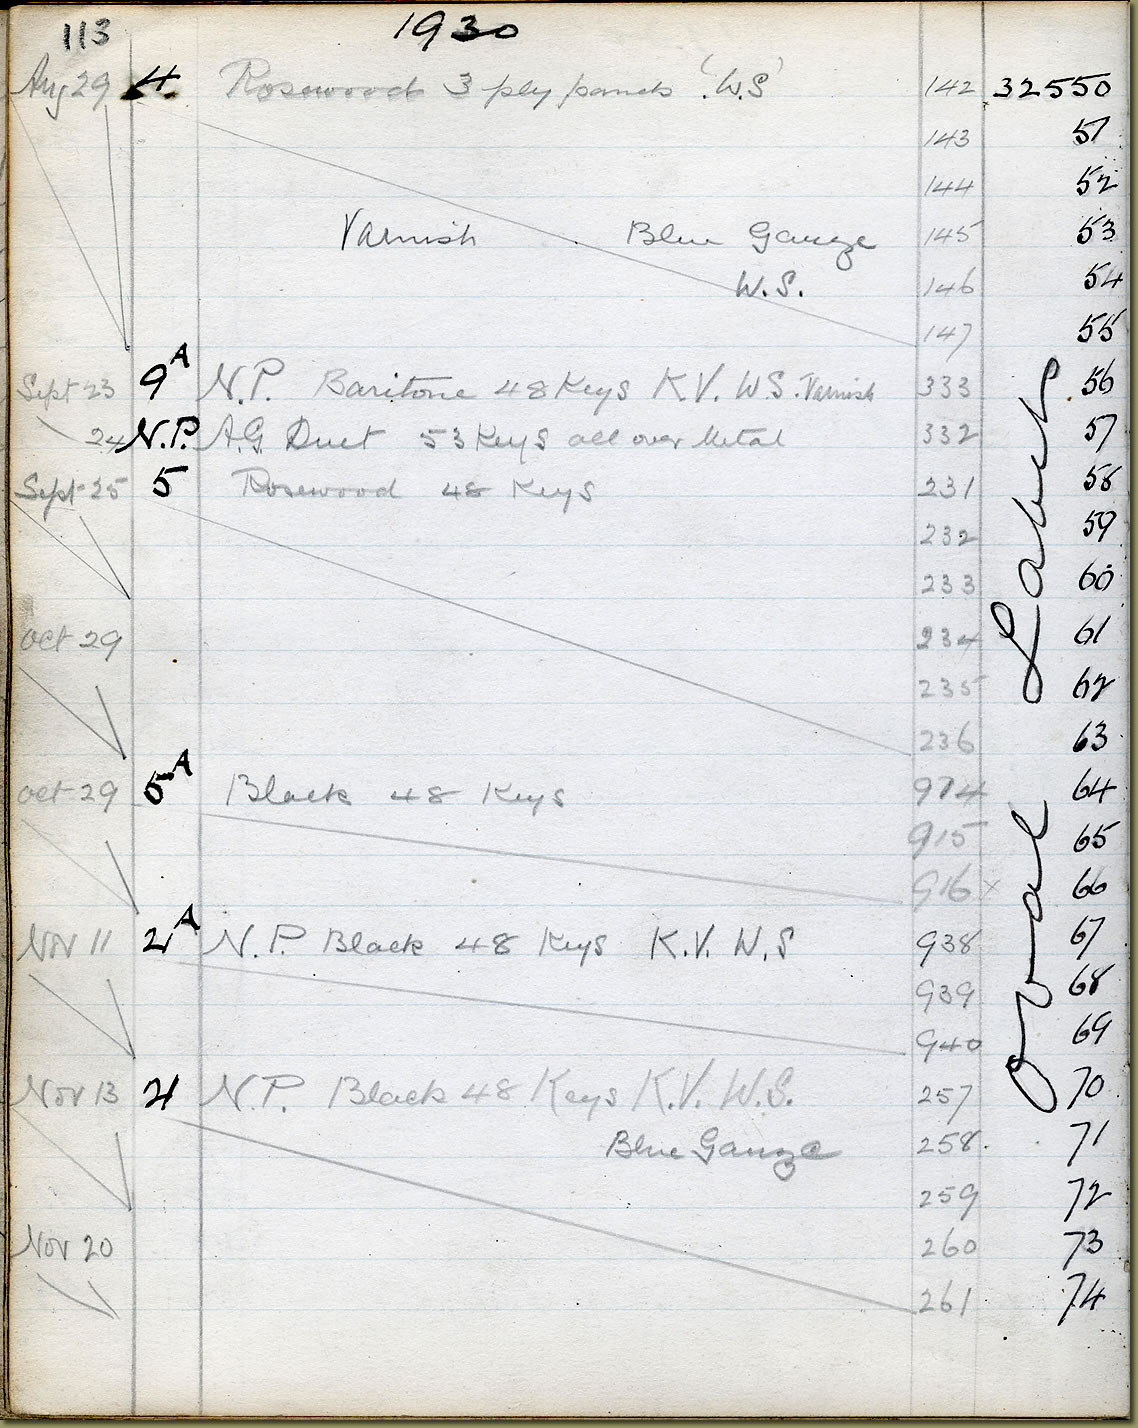 113 1930
Aug 29 4. Rosewood 3 ply panels (W.S) 142 32550
143 51
144 52
Varnish Blue Gauze 145 53
W.S. 146 54
147 55
Sept 23 9A N.P. Baritone 48 Keys K.V. W.S. Varnish 333 56
24 N.P. A.G. Duet 53 Keys all over Metal 332 57
Sept 25 5 Rosewood 48 Keys 231 58
232 59
233 60
oct 29 234 61
235 62
236 63
oct 29 5A Black 48 Keys 914 64
915 65
916 x 66
Nov 11 2A N.P. Black 48 Keys K.V. W.S 938 67
939 68
940 69
Nov 13 4 N.P. Black 48 Keys K.V. W.S. 257 70
Blue Gauze 258. 71
259 72
Nov 20 260 73
261 74
Oval Labels